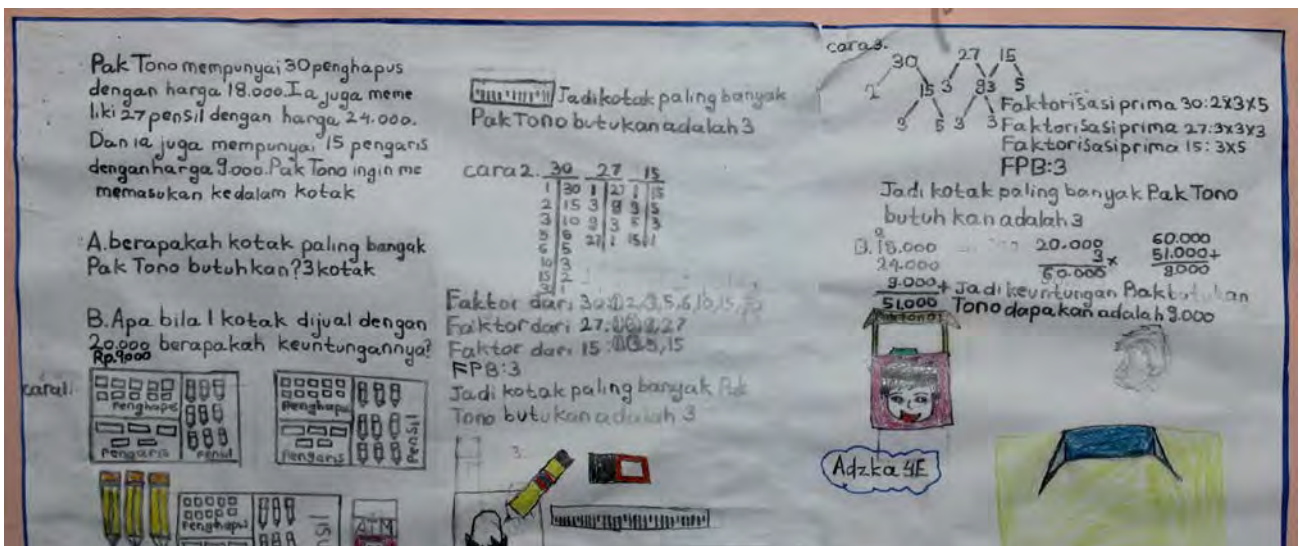 Pak Tono mempunyai 30 penghapus
dengan harga 18.000. Ia juga meme
liki 27 pensil dengan harga 24.000.
Dan ia juga mempunyai 15 pengaris
dengan harga 9.000. Pak Tono ingin me
memasukan kedalam kotak
A. berapakah kotak paling bangak
Pak Tono butuhkan? 3 kotak
B. Apa bila 1 kotak dijual dengan
20.000 berapakah keuntungannya?
Rp.9000
cara1.
Penghapus
Pengaris
Pensil
Penghapus
Pengaris
Pensil
Penghapus
ATM
Jadi kotak paling banyak
Pak Tono butukan adalah 3
cara 2. 30 27 15
1 30 1 27 1 15
2 15 3 9 3 5
3 10 9 3 5 3
5 6 27 1 15 1
6 5
10 3
15 2
Faktor dari 30: 1 2, 3, 5, 6, 10, 15,
Faktor dari 27: 27
Faktor dari 15: 5, 15
FPB: 3
Jadi kotak paling banyak Pak
Tono butukan adalah 3
cara 3.
30 27 15
2 15 3 93 5
3 5 3 3
Faktorisasi prima 30: 2x3x5
Faktorisasi prima 27: 3x3x3
Faktorisasi prima 15: 3x5
FPB: 3
Jadi kotak paling banyak Pak Tono
butuh kan adalah 3
B. 18.000
24.000
9.000 +
51.000
20.000
3 x
60.000
60.000
51.000 +
9.000
Jadi keuntungan Pak
Tono dapakan adalah 9.000
Adzka 4E